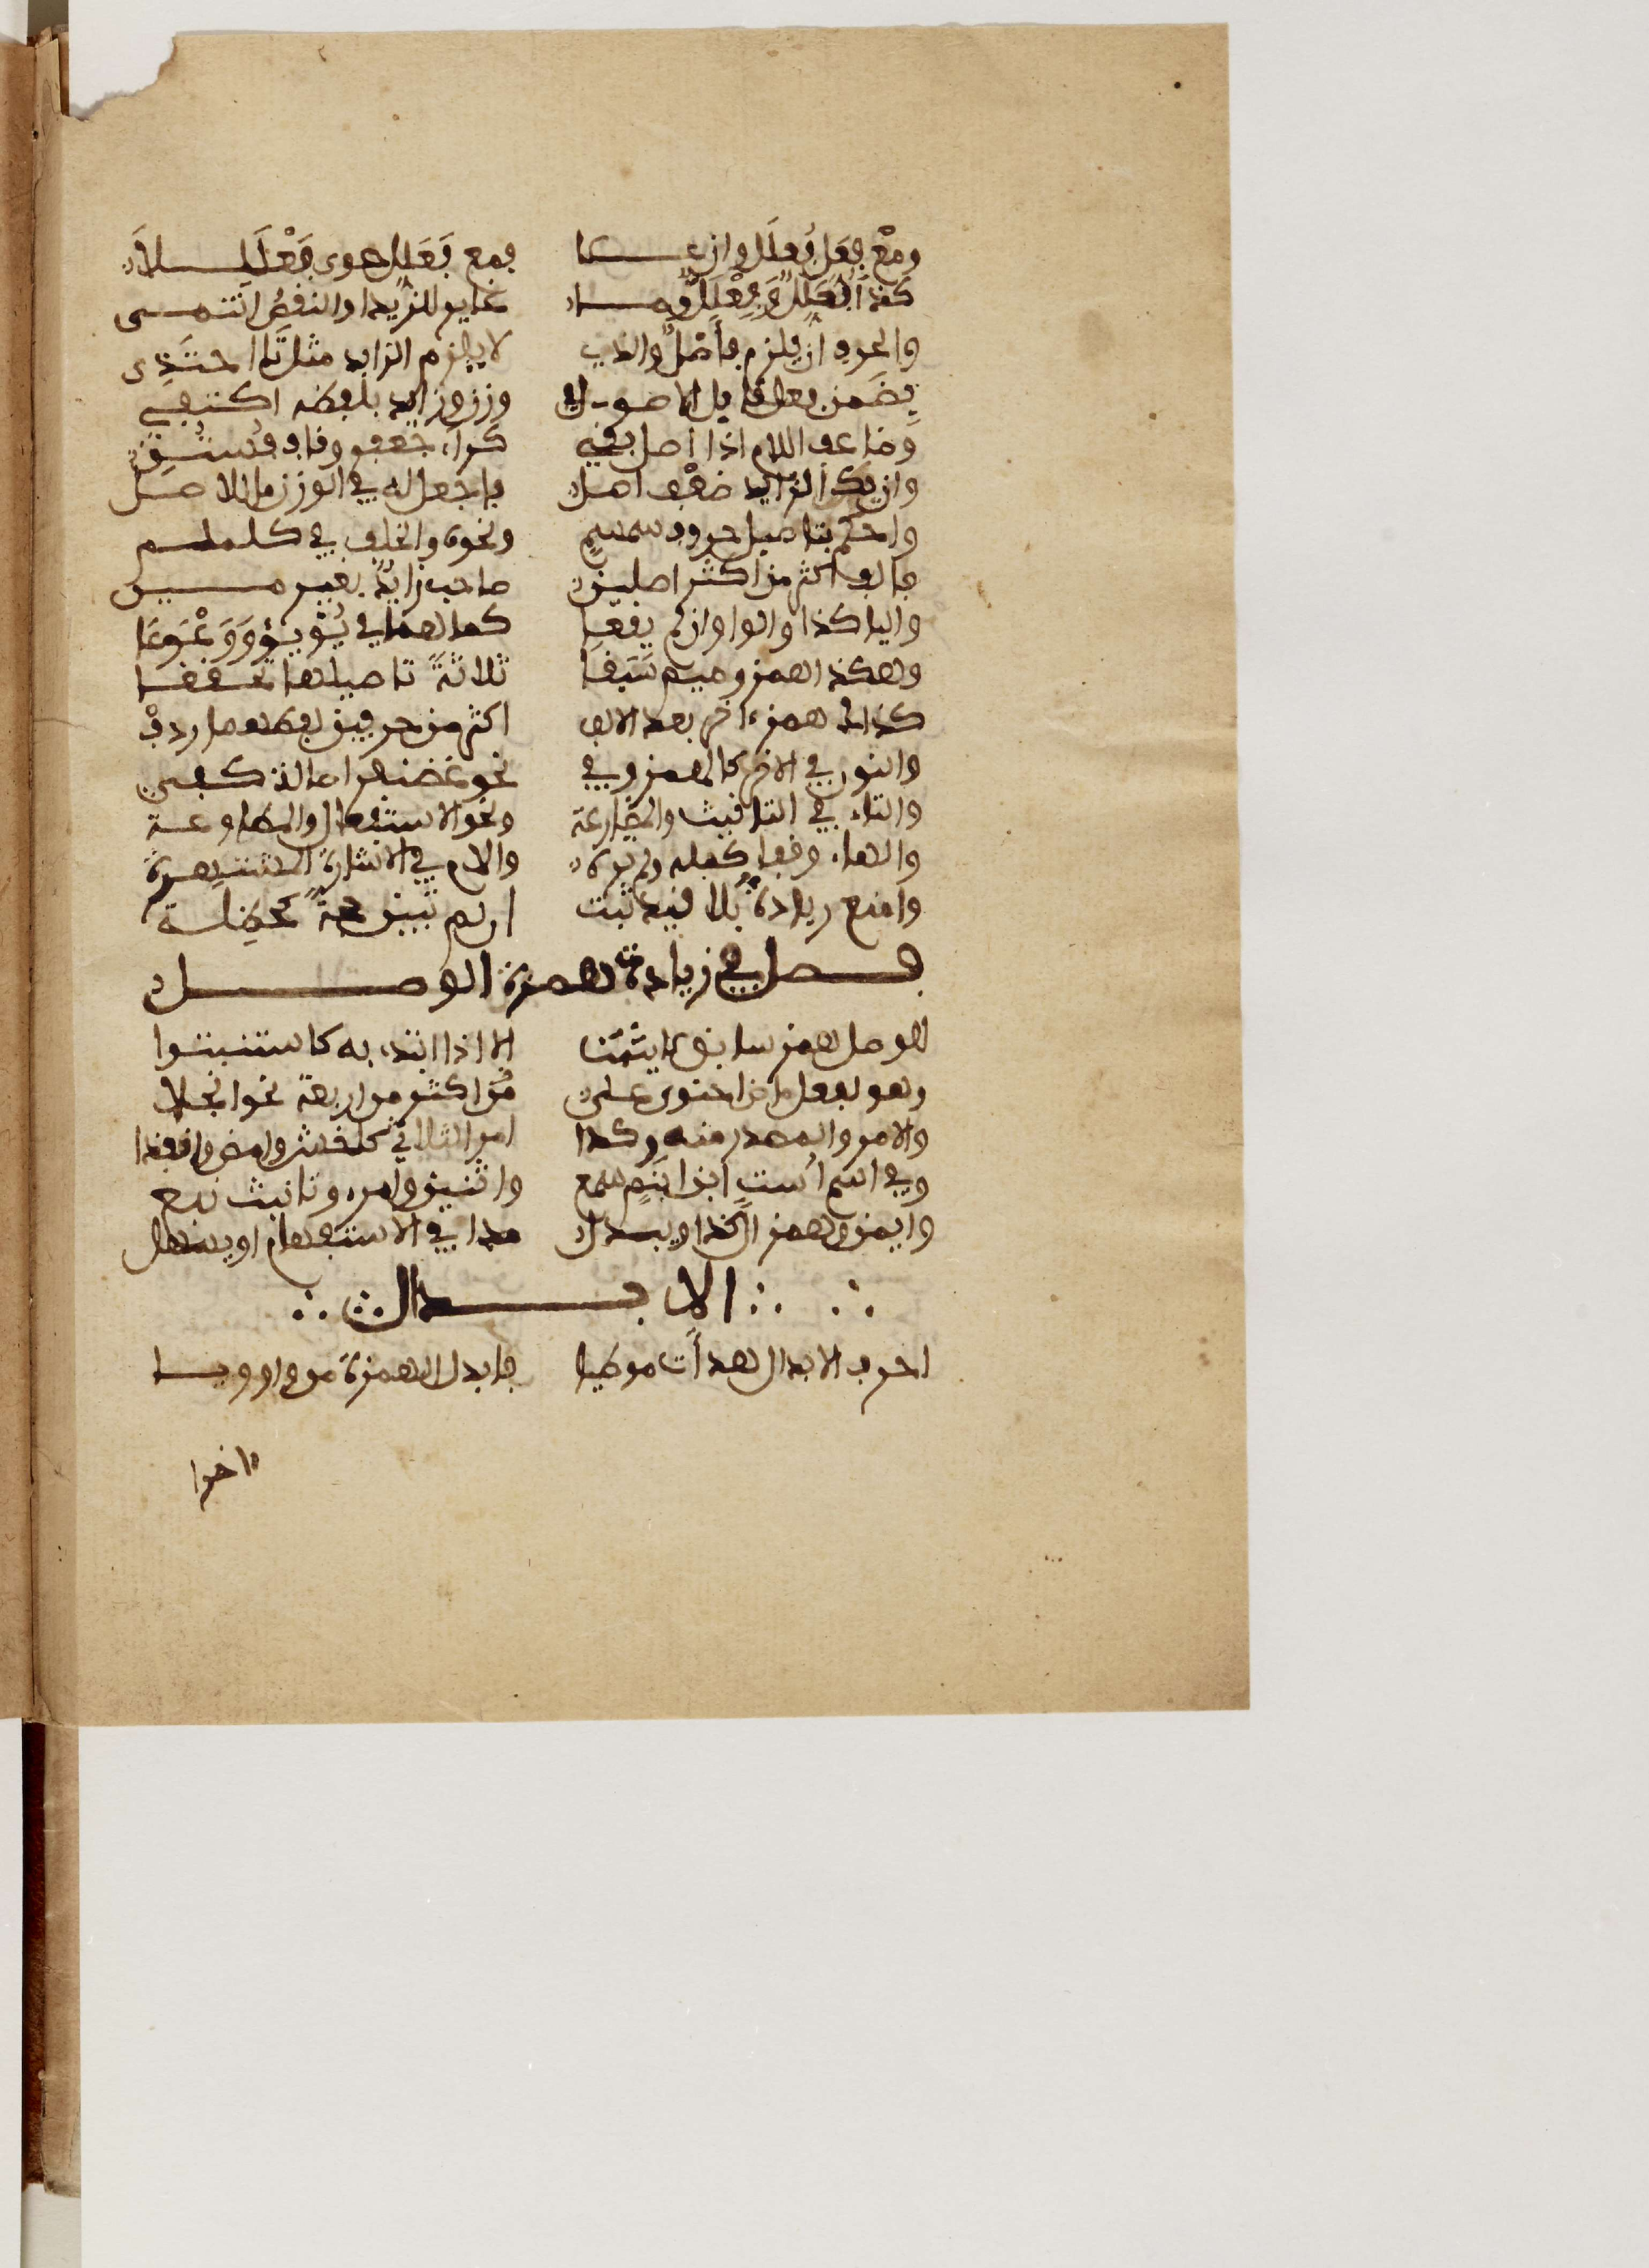 ومع فعل فعلل وان علا فمع فعلل حوى فعللا
كذا فعلل وفعلل وما غاير للزيد او النقص انتمى
والحرف ان يلزم فاصل والذي لا يلزم الزايد مثل تا احتذى
بضمن فعل قابل الاصول في وزن وزايد بلفظه اكتفي
وضاعف اللام اذا اصل بقي كراء جعفر وقاف فستق
وان يك الزايد ضعف اصل فاجعل له في الوزن ما للاصل
واحكم بتاصيل حروف سمسم ونحوه والخلف في كلملم
فالف اكثر من اصلين صاحب زايد بغير مين
واليا كذا والواو ان لم يقعا كما هما في يؤيؤ ووعوعا
وهكذا همز وميم سبقا ثلاثة تاصيلها تحققا
كذاك همز ءاخر بعد الالف اكثر من حرفين لفظها ردف
والنون في الاخر كالهمز وفي نحو غضنفر اصالة كفي
والتاء في التانيث والمضارعة ونحو الاستفعال والمطاوعة
والهاء وقفا كلمه ولم تره والام في الاشارة المشتهرة
وامنع زيادة بلا قيد ثبت ان لم تبين حجة كحظلت
فصل في زيادة همزة الوصل
للوصل همز سابق لا يثبت الا اذا ابتدء به كاستثبتوا
وهو لفعل ماض احتوى على اكثر من اربعة نحو انجلا
والامر والمصدر منه وكذا امر الثلاثي كاخش وامض وانفذا
وفي اسم است ابن ابنم سمع واثنين وامرء وتانيث تبع
وايمن وهمز ال كذا ويبدل مدا في الاستفهام او يسهل
الابدال
احرف الابدال هدات موطيا فابدل الهمزة من واو ويا
ءاخرا